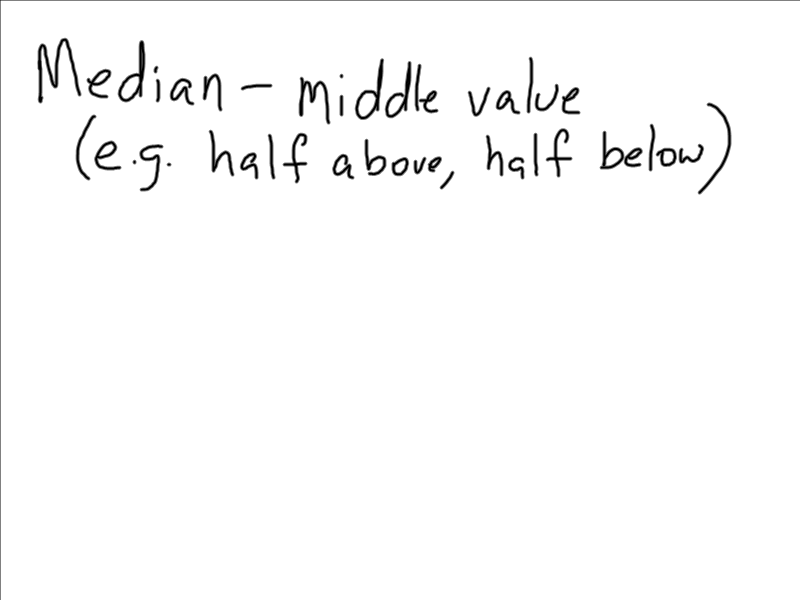 Median – middle value
(e.g. half above, half below)